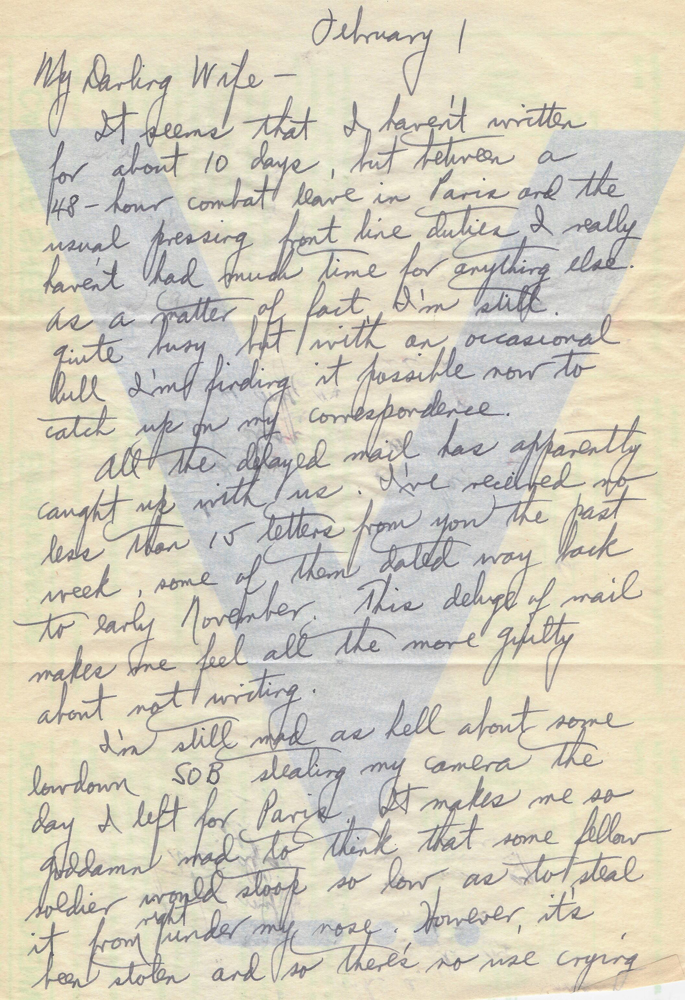 February 1
My Darling Wife –
It seems that I haven't written
for about 10 days, but between a
48-hour combat leave in Paris and the
usual pressing front line duties I really
haven't had much time for anything else.
As a matter of fact, I'm still
quite busy but with an occasional
lull I'm finding it possible now to
catch up on my correspondence.
All the delayed mail has apparently
caught up with us. I've received no
less than 15 letters from you the past
week, some of them dated way back
to early November. This deluge of mail
makes me feel all the more guilty
about not writing.
I'm still mad as hell about some
lowdown SOB stealing my camera the
day I left for Paris. It makes me so
goddamn mad to think that some fellow
soldier would stoop so low as to steal
it from right under my nose. However, it's
been stolen and so there's no use crying